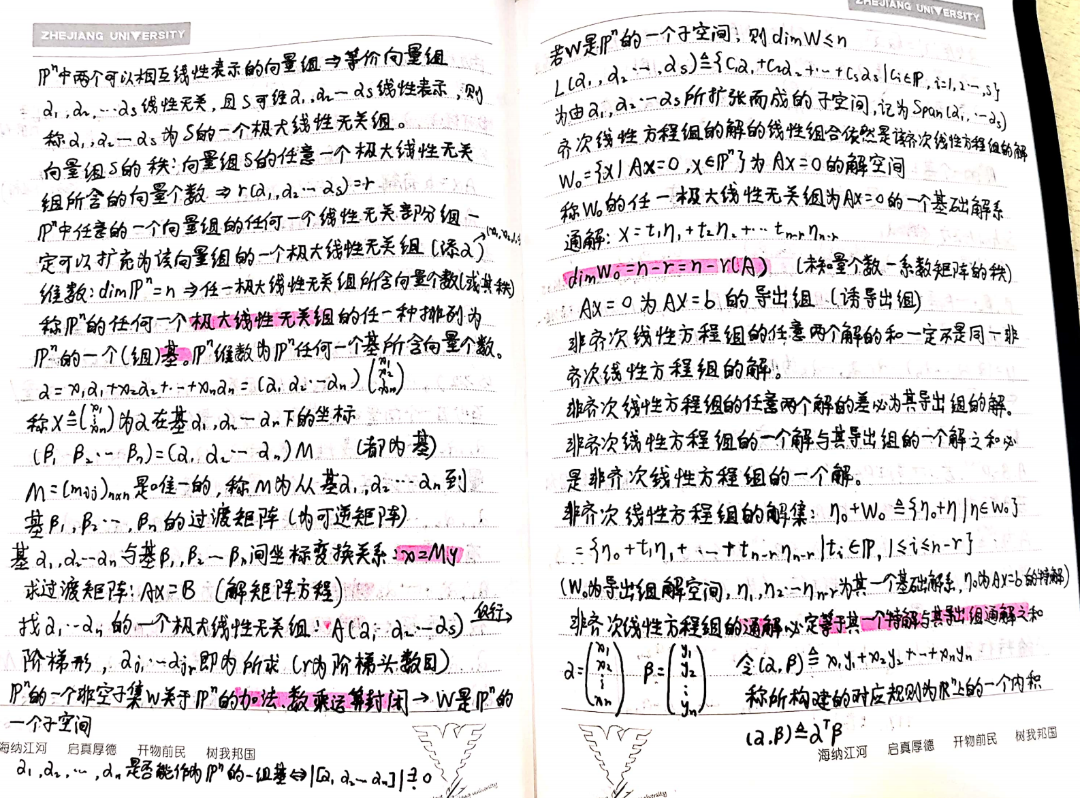 ZHEJIANG UNIVERSITY
ℙⁿ中两个可以相互线性表示的向量组⇒等价向量组
α₁,α₂,…αs线性无关,且S可经α₁,α₂…αs线性表示,则
称α₁,α₂…αs为S的一个极大线性无关组。
向量组S的秩:向量组S的任意一个极大线性无关
组所含的向量个数⇒r(α₁,α₂…αs)=r
ℙⁿ中任意的一个向量组的任何一个线性无关部分组一
定可以扩充为该向量组的一个极大线性无关组(添α)
维数:dimℙⁿ=n⇒任一极大线性无关组所含向量个数(或其秩)
称ℙⁿ的任何一个极大线性无关组的任一种排列为
ℙⁿ的一个(组)基。ℙⁿ维数为ℙⁿ任何一个基所含向量个数。
α=x₁α₁+x₂α₂+…+xₙαₙ=(α₁ α₂…αₙ)(x₁ x₂ ⋮ xₙ)
称X≜(x₁ ⋮ xₙ)为α在基α₁,α₂…αₙ下的坐标
(β₁ β₂…βₙ)=(α₁ α₂…αₙ)M (都为基)
M=(mij)n×n是唯一的,称M为从基α₁,α₂…αₙ到
基β₁,β₂…,βₙ的过渡矩阵(为可逆矩阵)
基α₁,α₂…αₙ与基β₁,β₂…βₙ间坐标变换关系:x=My
求过渡矩阵:AX=B (解矩阵方程)
找α₁…αₙ的一个极大线性无关组:A(α₁ α₂…αs) 仅行→
阶梯形,αj₁…αjr即为所求(r为阶梯头数目)
ℙⁿ的一个非空子集W关于ℙⁿ的加法、数乘运算封闭→W是ℙⁿ的
一个子空间
海纳江河 启真厚德 开物前民 树我邦国
α₁,α₂,…,αₙ是否能作为ℙⁿ的一组基⇔|[α₁ α₂…αₙ]|≟0
ZHEJIANG UNIVERSITY
若W是ℙⁿ的一个子空间,则dimW≤n
L(α₁,α₂…,αs)≜{C₁α₁+C₂α₂+…+Csαs|Ci∈ℙ,i=1,2…,s}
为由α₁,α₂…αs所扩张而成的子空间,记为Span(α₁,…αs)
齐次线性方程组的解的线性组合依然是该齐次线性方程组的解
W₀={x|Ax=0,x∈ℙⁿ}为Ax=0的解空间
称W₀的任一极大线性无关组为Ax=0的一个基础解系
通解:X=t₁η₁+t₂η₂+…tn-rηn-r
dimW₀=n-r=n-r(A) (未知量个数-系数矩阵的秩)
AX=0为AX=b的导出组(诱导出组)
非齐次线性方程组的任意两个解的和一定不是同一非
齐次线性方程组的解。
非齐次线性方程组的任意两个解的差必为其导出组的解。
非齐次线性方程组的一个解与其导出组的一个解之和必
是非齐次线性方程组的一个解。
非齐次线性方程组的解集:η₀+W₀≜{η₀+η|η∈W₀}
={η₀+t₁η₁+…+tn-rηn-r|ti∈ℙ,1≤i≤n-r}
(W₀为导出组解空间,η₁,η₂…ηn-r为其一个基础解系,η₀为AX=b的特解)
非齐次线性方程组的通解必定等于其一个特解与其导出组通解之和
α=(x₁ x₂ ⋮ xₙ) β=(y₁ y₂ ⋮ yₙ) 令(α,β)≜x₁y₁+x₂y₂+…+xₙyₙ
称所构建的对应规则为ℝⁿ上的一个内积
(α,β)≜αᵀβ
海纳江河 启真厚德 开物前民 树我邦国